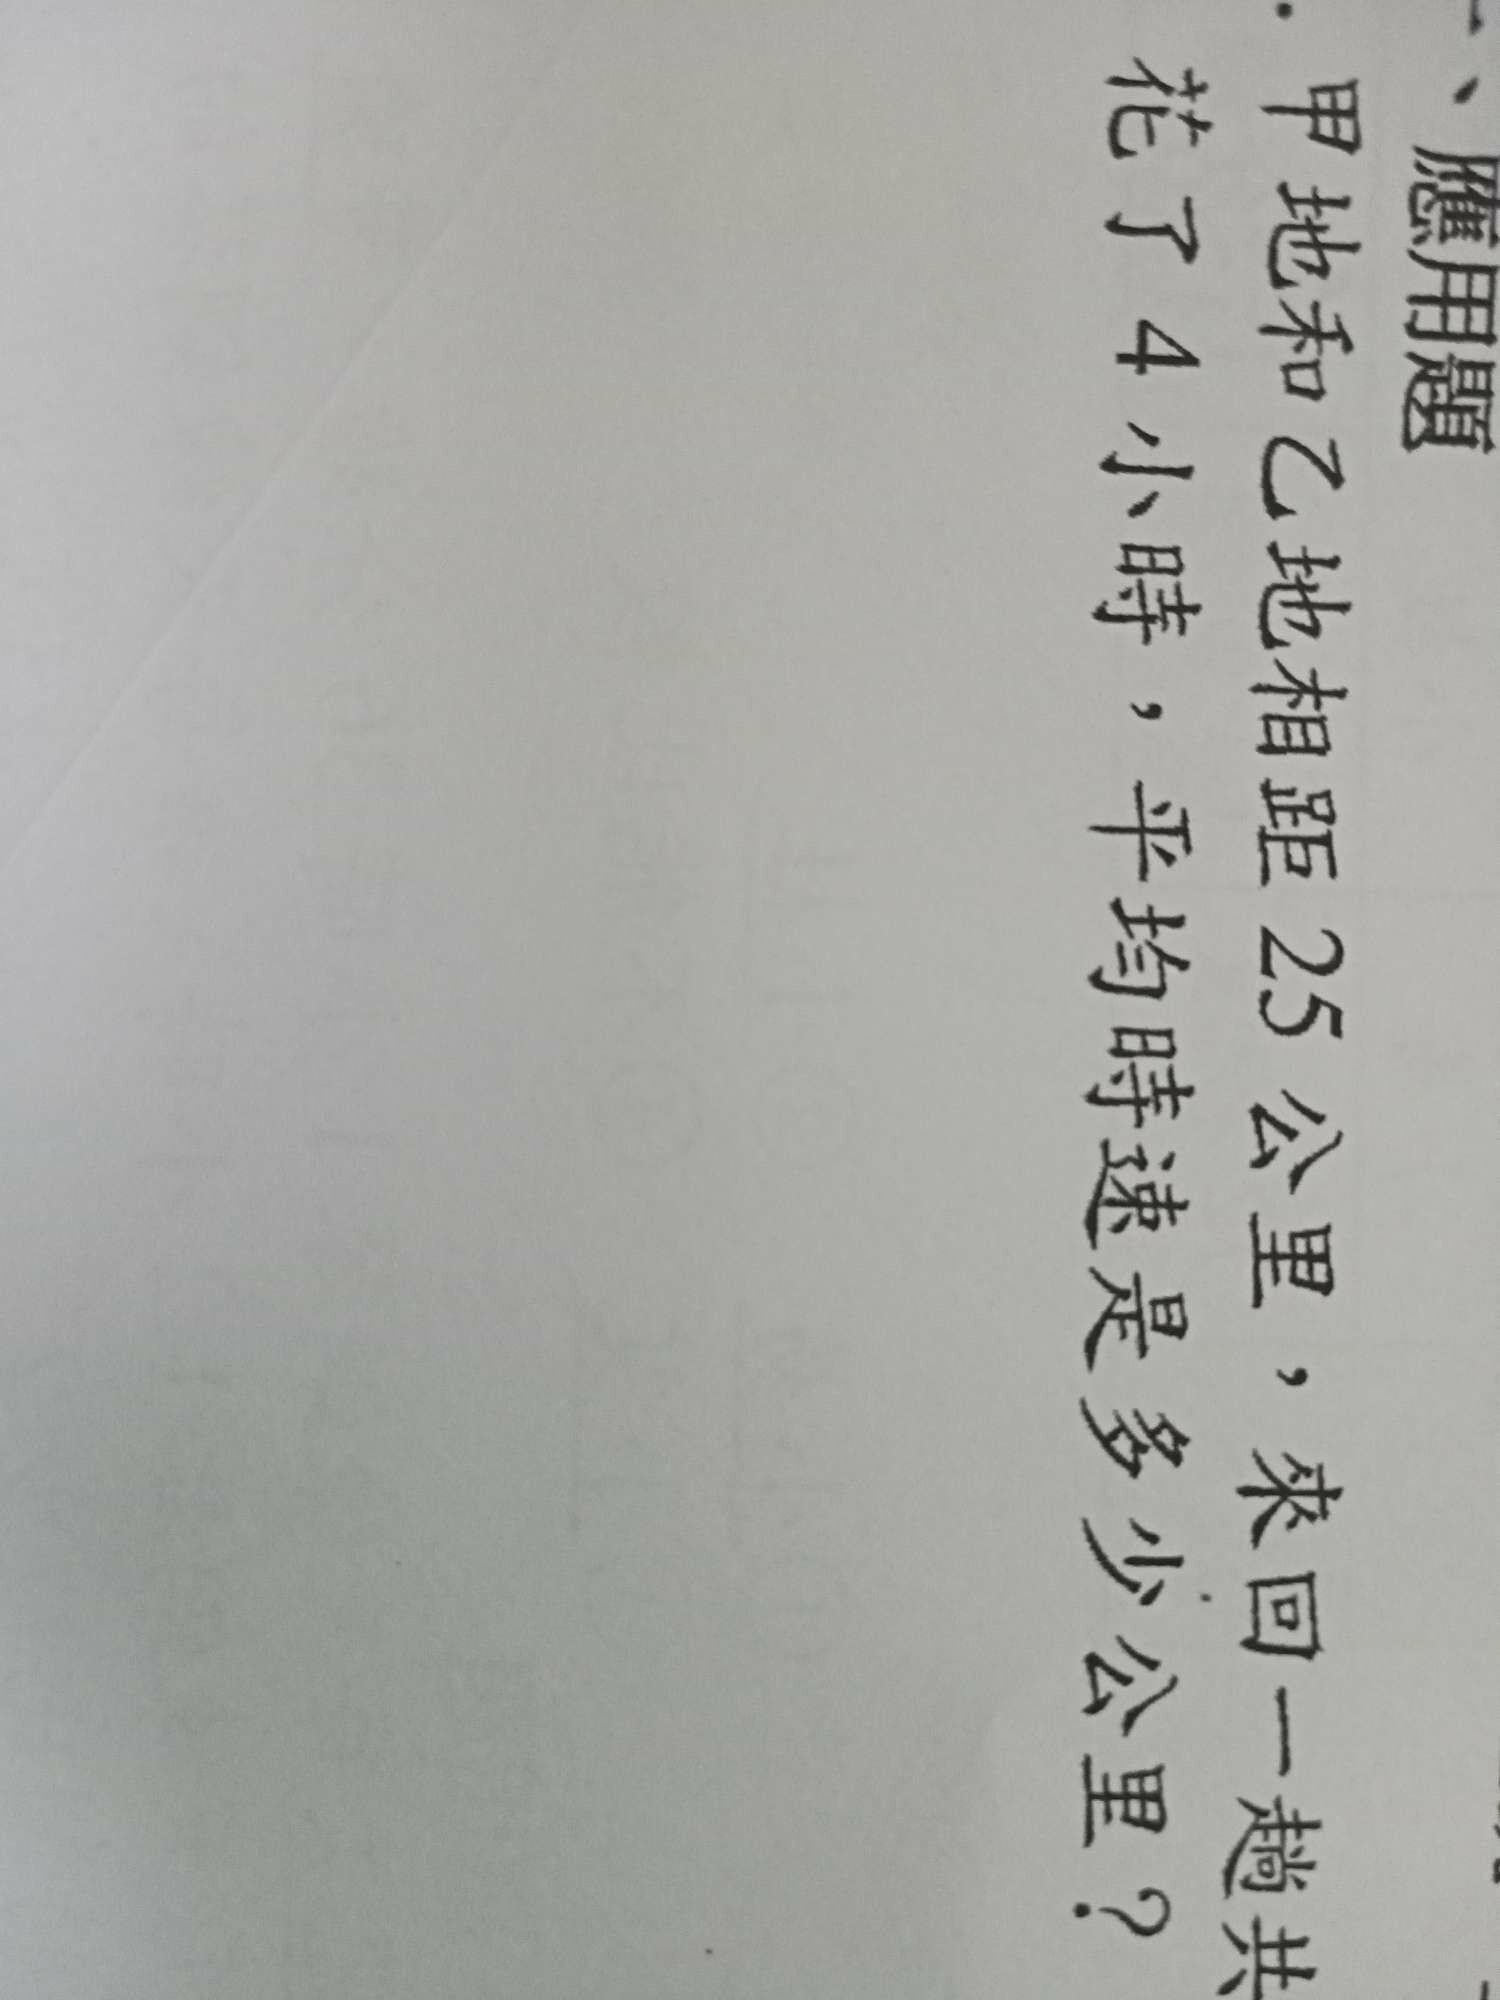 、應用題
甲地和乙地相距 25 公里，來回一趟共
花了 4 小時，平均時速是多少公里？